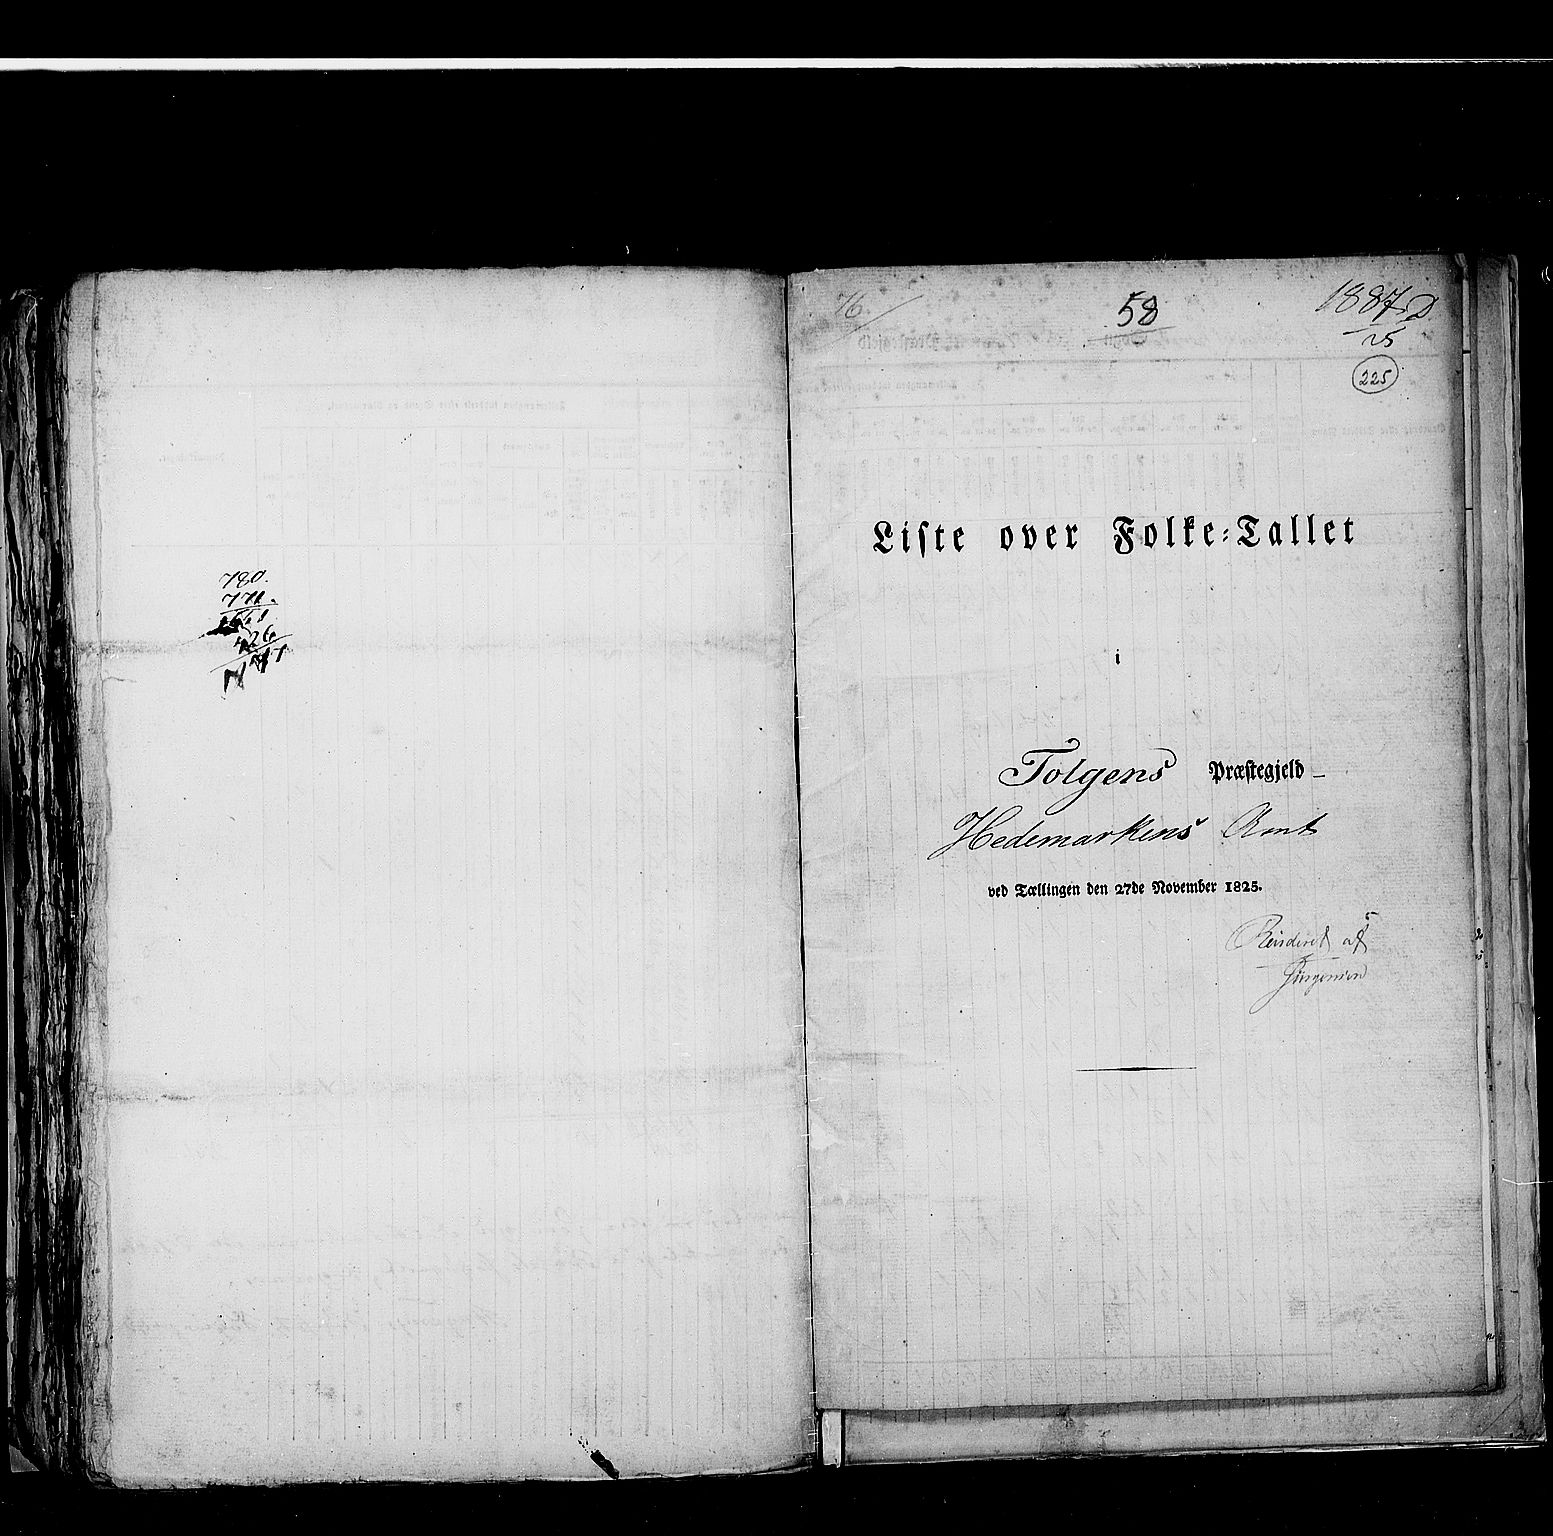 780.
771.
426
76.
58
1887 D
25
225
Liste over Folke-Tallet
i
Tolgens Præstegjeld
Hedemarkens Amt
ved Tællingen den 27de November 1825.
Revideret af
Jürgensen